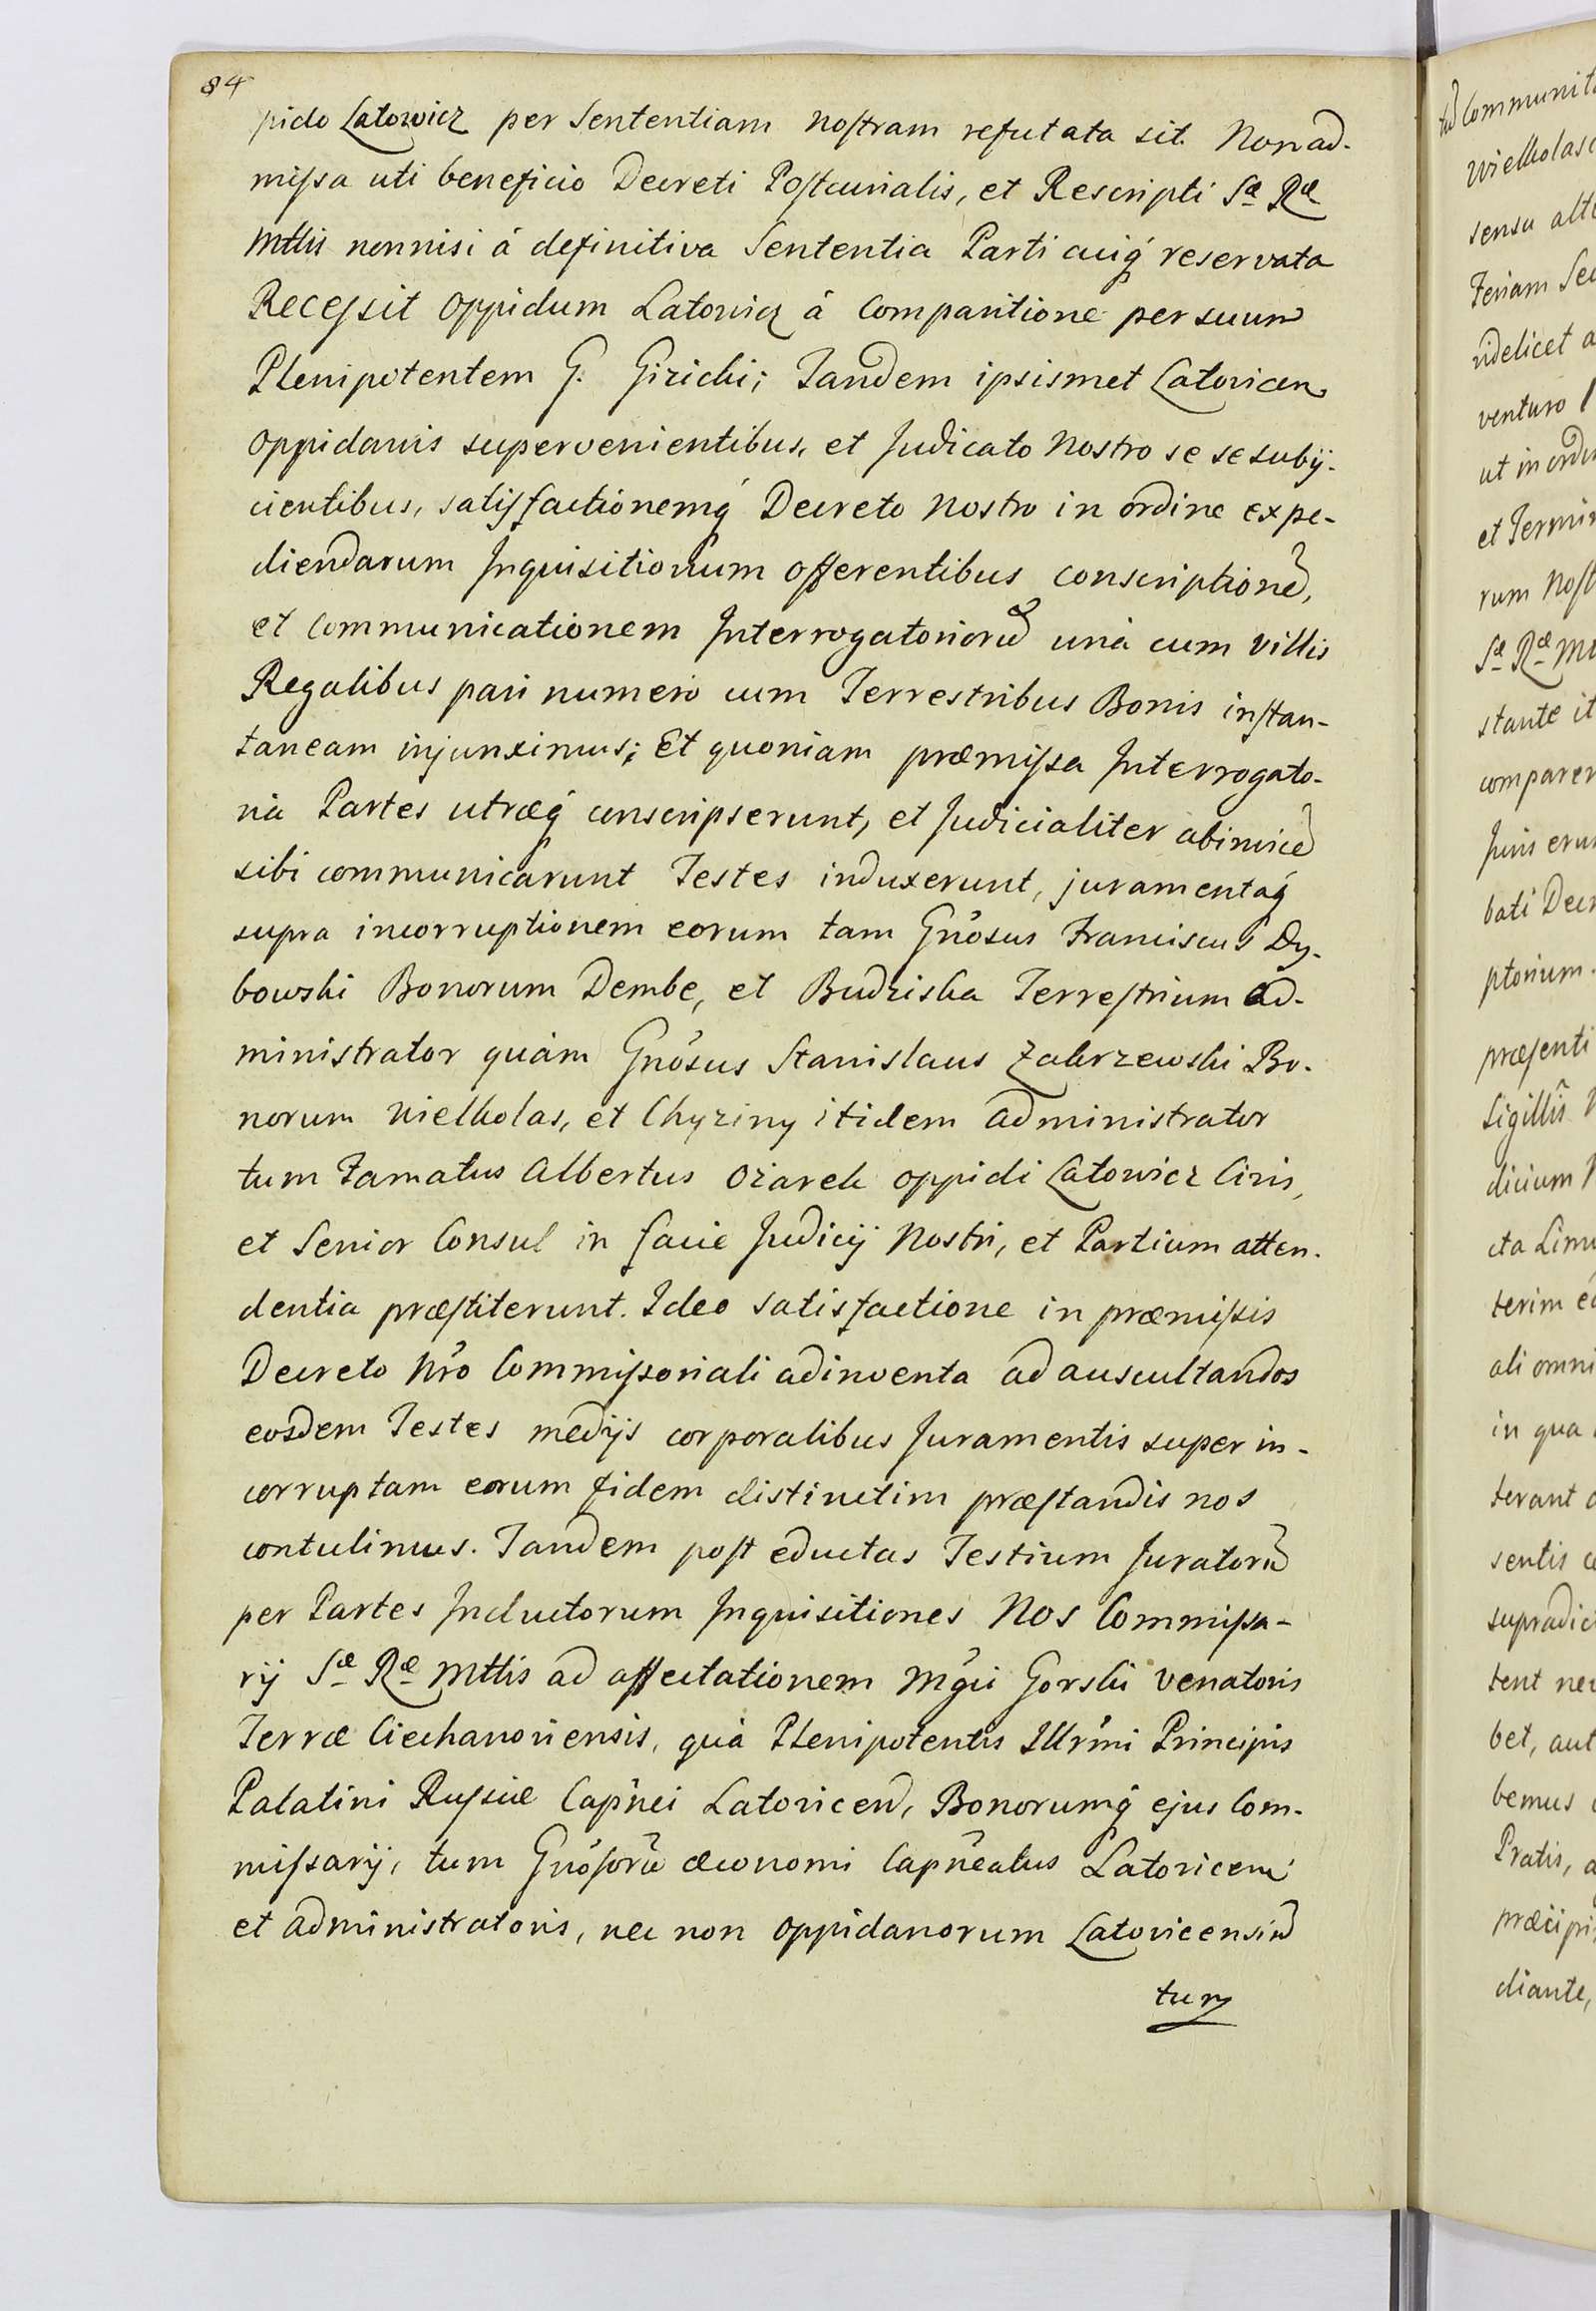 84
pido Latowicz per Sententiam noſtram refutata sit. Non ad-
miſsa uti beneficio Decreti Poſtcurialis, et Rescripti Sæ Ræ
Mttis nonnisi á definitiva Sententia Parti cuiq́ reservata
Receſsit Oppidum Latowicz á Comparitione per suum
Plenipotentem G. Giricki; Tandem ipsismet Latovicen
Oppidanis supervenientibus, et Judicato Nostro se se subij-
cientibus, satisfactionemq́ Decreto Nostro in ordine expe-
diendarum Inquisitionum offerentibus conscriptionẽ,
et Communicationem Interrogatoriorũ uná cum villis
Regalibus pari numero cum Terrestribus Bonis inſtan-
taneam injunximus; Et quoniam præmiſsa Interrogato-
ria Partes utræq́ conscripserunt, et Judicialiter abinvicẽ
sibi communicarunt Testes induxerunt, juramentaq́
supra incorruptionem eorum tam Gnősus Franciscus Dy-
bowski Bonorum Dembe, et Budziska Terreſtrium Ad-
ministrator quám Gnősus Stanislaus Zakrzewski Bo-
norum Wielkolas, et Chyziny itidem Administrator
tum Famatus Albertus Oźarek oppidi Latowicz Civis,
et Senior Consul in facie Judicij Nostri, et Partium atten-
dentia præſtiterunt. Ideo satisfactione in præmiſsis
Decreto Nrő Commiſsoriali adinventa ad auscultandos
eosdem Testes medijs corporalibus Juramentis super in-
corruptam eorum fidem distinctim præſtandis nos
contulimus. Tandem poſt eductas Testium Juratorũ
per Partes Inductorum Inquisitiones Nos Commiſsa-
rij Sæ Ræ Mttis ad affectationem Mgći Gorski Venatoris
Terræ Ciechanoviensis, quá Plenipotentis Illrm̃i Principis
Palatini Ruſsiæ Capñei Latovicen, Bonorumq́ ejus Com-
miſsarij, tum Gnőſorũ œconomi Capñeatus Latovicen
et Administratoris, nec non Oppidanorum Latovicensiũ
tum
tũ Communita
Wielkolasc
sensu alte
Feriam Sec
videlicet a
venturo
ut in ordi
et Termin
rum Noſt
Sæ Ræ Mt
stante it
comparer
Juris erun
bati Decr
ptorium.
præſenti
Sigillis N
dicium N
cta Limi
terim
ali omni
in qua
terant
sentis
supradic
tent nec
bet, aut
bemus
Pratis, a
præcipi
diante,